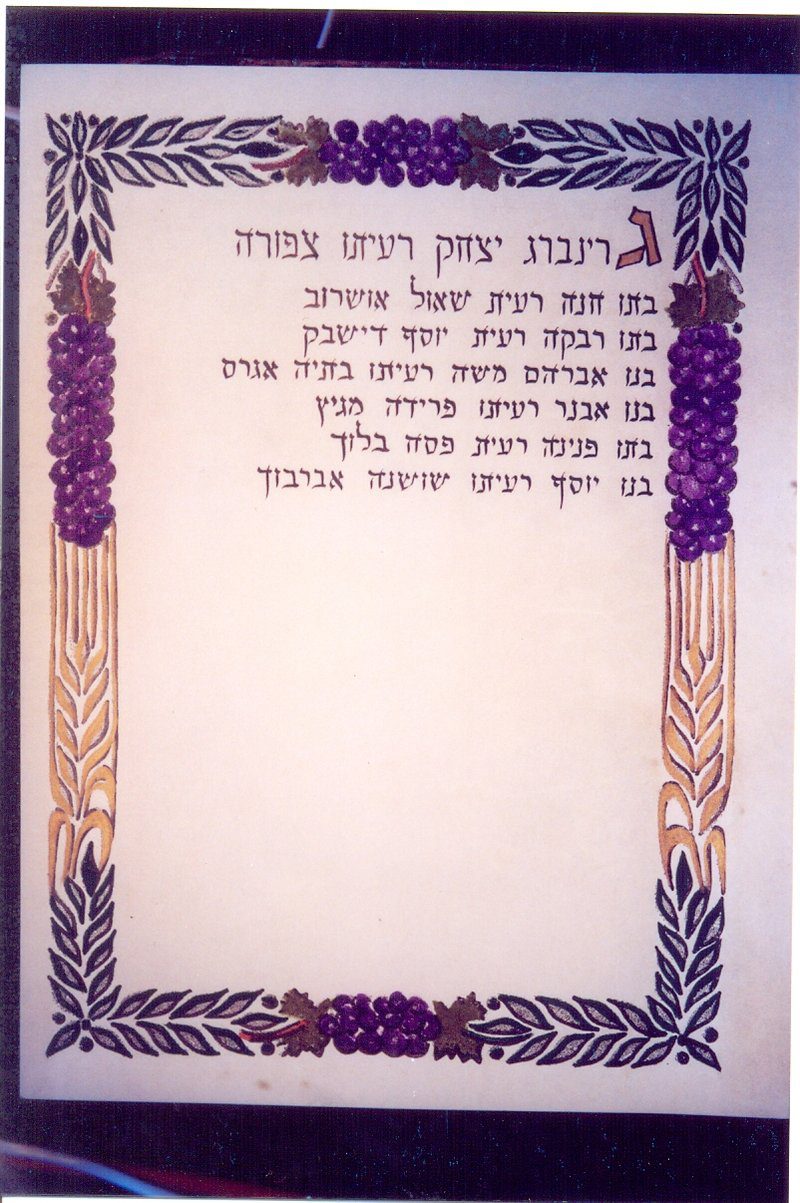 גרינברג יצחק רעיתו צפורה
בתו חנה רעית שאול אושרוב
בתו רבקה רעית יוסף דישבק
בנו אברהם משה רעיתו בתיה אגרס
בנו אבנר רעיתו פרידה מגיץ
בתו פנינה רעית פסח בלוך
בנו יוסף רעיתו שושנה אברבוך